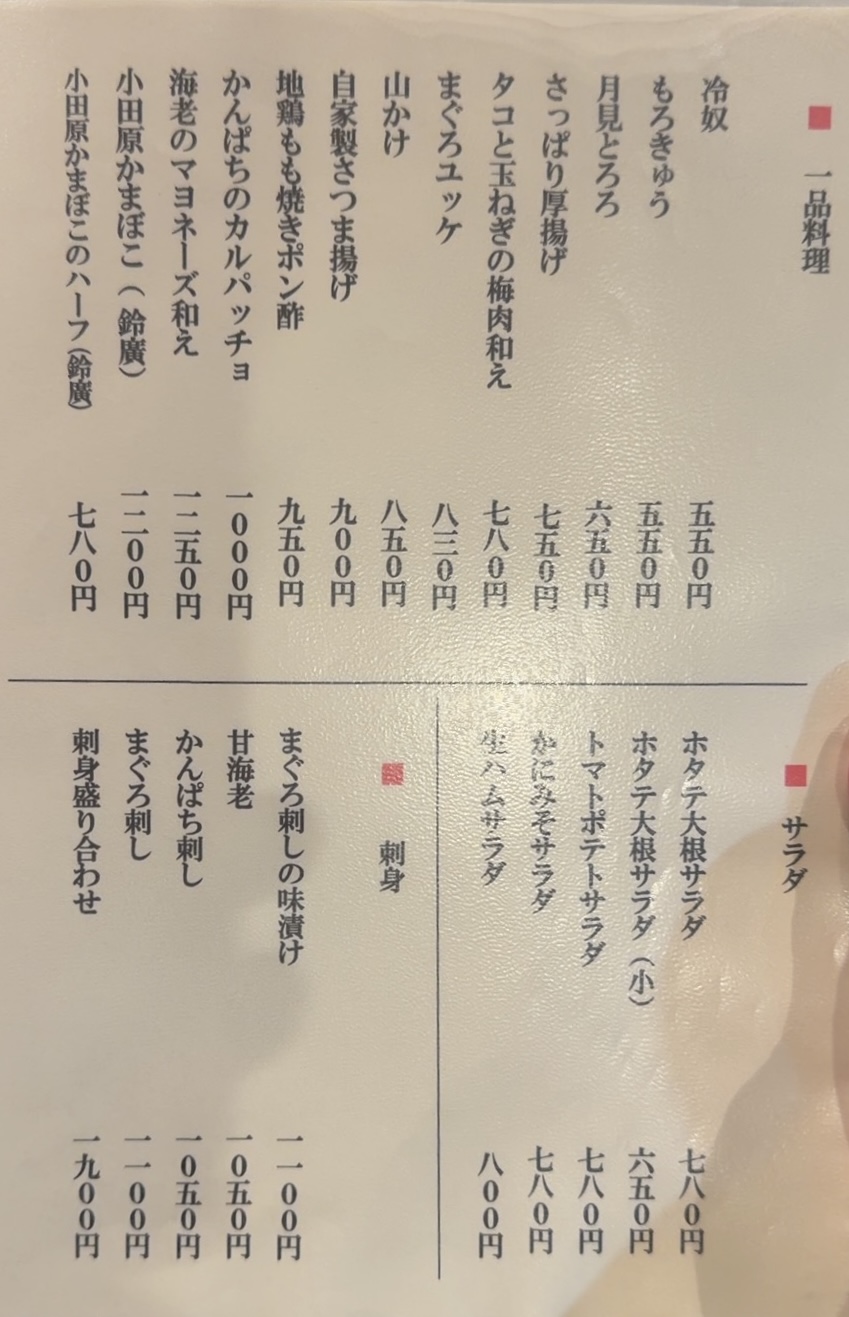 ■ 一品料理
冷奴 五五0円
もろきゅう 五五0円
月見とろろ 六五0円
さっぱり厚揚げ 七五0円
タコと玉ねぎの梅肉和え 七八0円
まぐろユッケ 八三0円
山かけ 八五0円
自家製さつま揚げ 九00円
地鶏もも焼きポン酢 九五0円
かんぱちのカルパッチョ 一000円
海老のマヨネーズ和え 一二五0円
小田原かまぼこ（鈴廣） 一二00円
小田原かまぼこのハーフ（鈴廣） 七八0円
■ サラダ
ホタテ大根サラダ 七八0円
ホタテ大根サラダ（小） 六五0円
トマトポテトサラダ 七八0円
かにみそサラダ 七八0円
生ハムサラダ 八00円
■ 刺身
まぐろ刺しの味漬け 一一00円
甘海老 一0五0円
かんぱち刺し 一0五0円
まぐろ刺し 一一00円
刺身盛り合わせ 一九00円